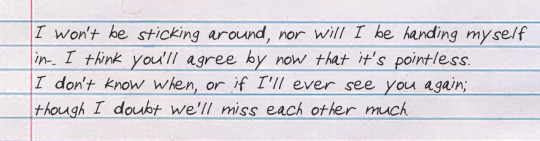 I won't be sticking around, nor will I be handing myself
in-. I think you'll agree by now that it's pointless.
I don't know when, or if I'll ever see you again;
though I doubt we'll miss each other much